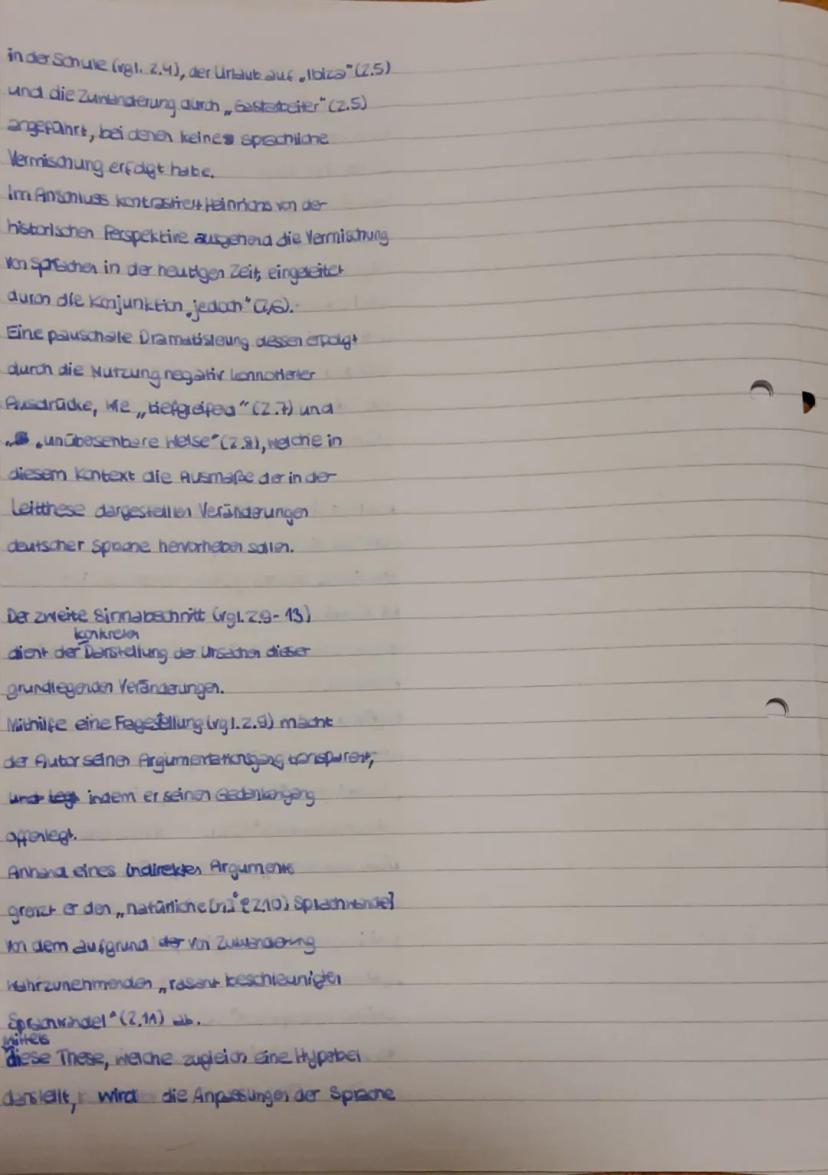 in der Schule (vgl. Z.4), der Urlaub auf „Ibiza" (Z.5)
und die Zuwanderung durch „Gastarbeiter" (Z.5)
angeführt, bei denen keine sprachliche
Vermischung erfolgt habe.
Im Anschluss kontrastiert Heinrichs von der
historischen Perspektive ausgehend die Vermischung
von Sprachen in der heutigen Zeit, eingeleitet
durch die Konjunktion „jedoch" (Z.6).
Eine pauschale Dramatisieung dessen erfolgt
durch die Nutzung negativ konnotierter
Ausdrücke, wie „tiefgreifed" (Z.7) und
„unübesenbare Weise" (Z.8), welche in
diesem Kontext die Ausmaße der in der
Leitthese dargestellten Veränderungen
deutscher Sprache hervorheben sollen.
Der zweite Sinnabschnitt (vgl. Z.9-13)
konkreten
dient der Darstellung der Ursachen dieser
grundlegenden Veränderungen.
Mithilfe eine Fagestellung (vgl. Z.9) macht
der Autor seinen Argumentationsgang transparent,
und legt indem er seinen Gedankengang
offenlegt.
Anhand eines indirekten Arguments
grenzt er den „natürliche[n]" (Z.10) Sprachwandel
von dem aufgrund der von Zuwanderung
wahrzunehmenden „rasant beschleunigten
Sprachwandel" (Z.11) ab.
Mittels
diese These, welche zugleich eine Hypebel
darstellt, wird die Anpassungen der Sprache